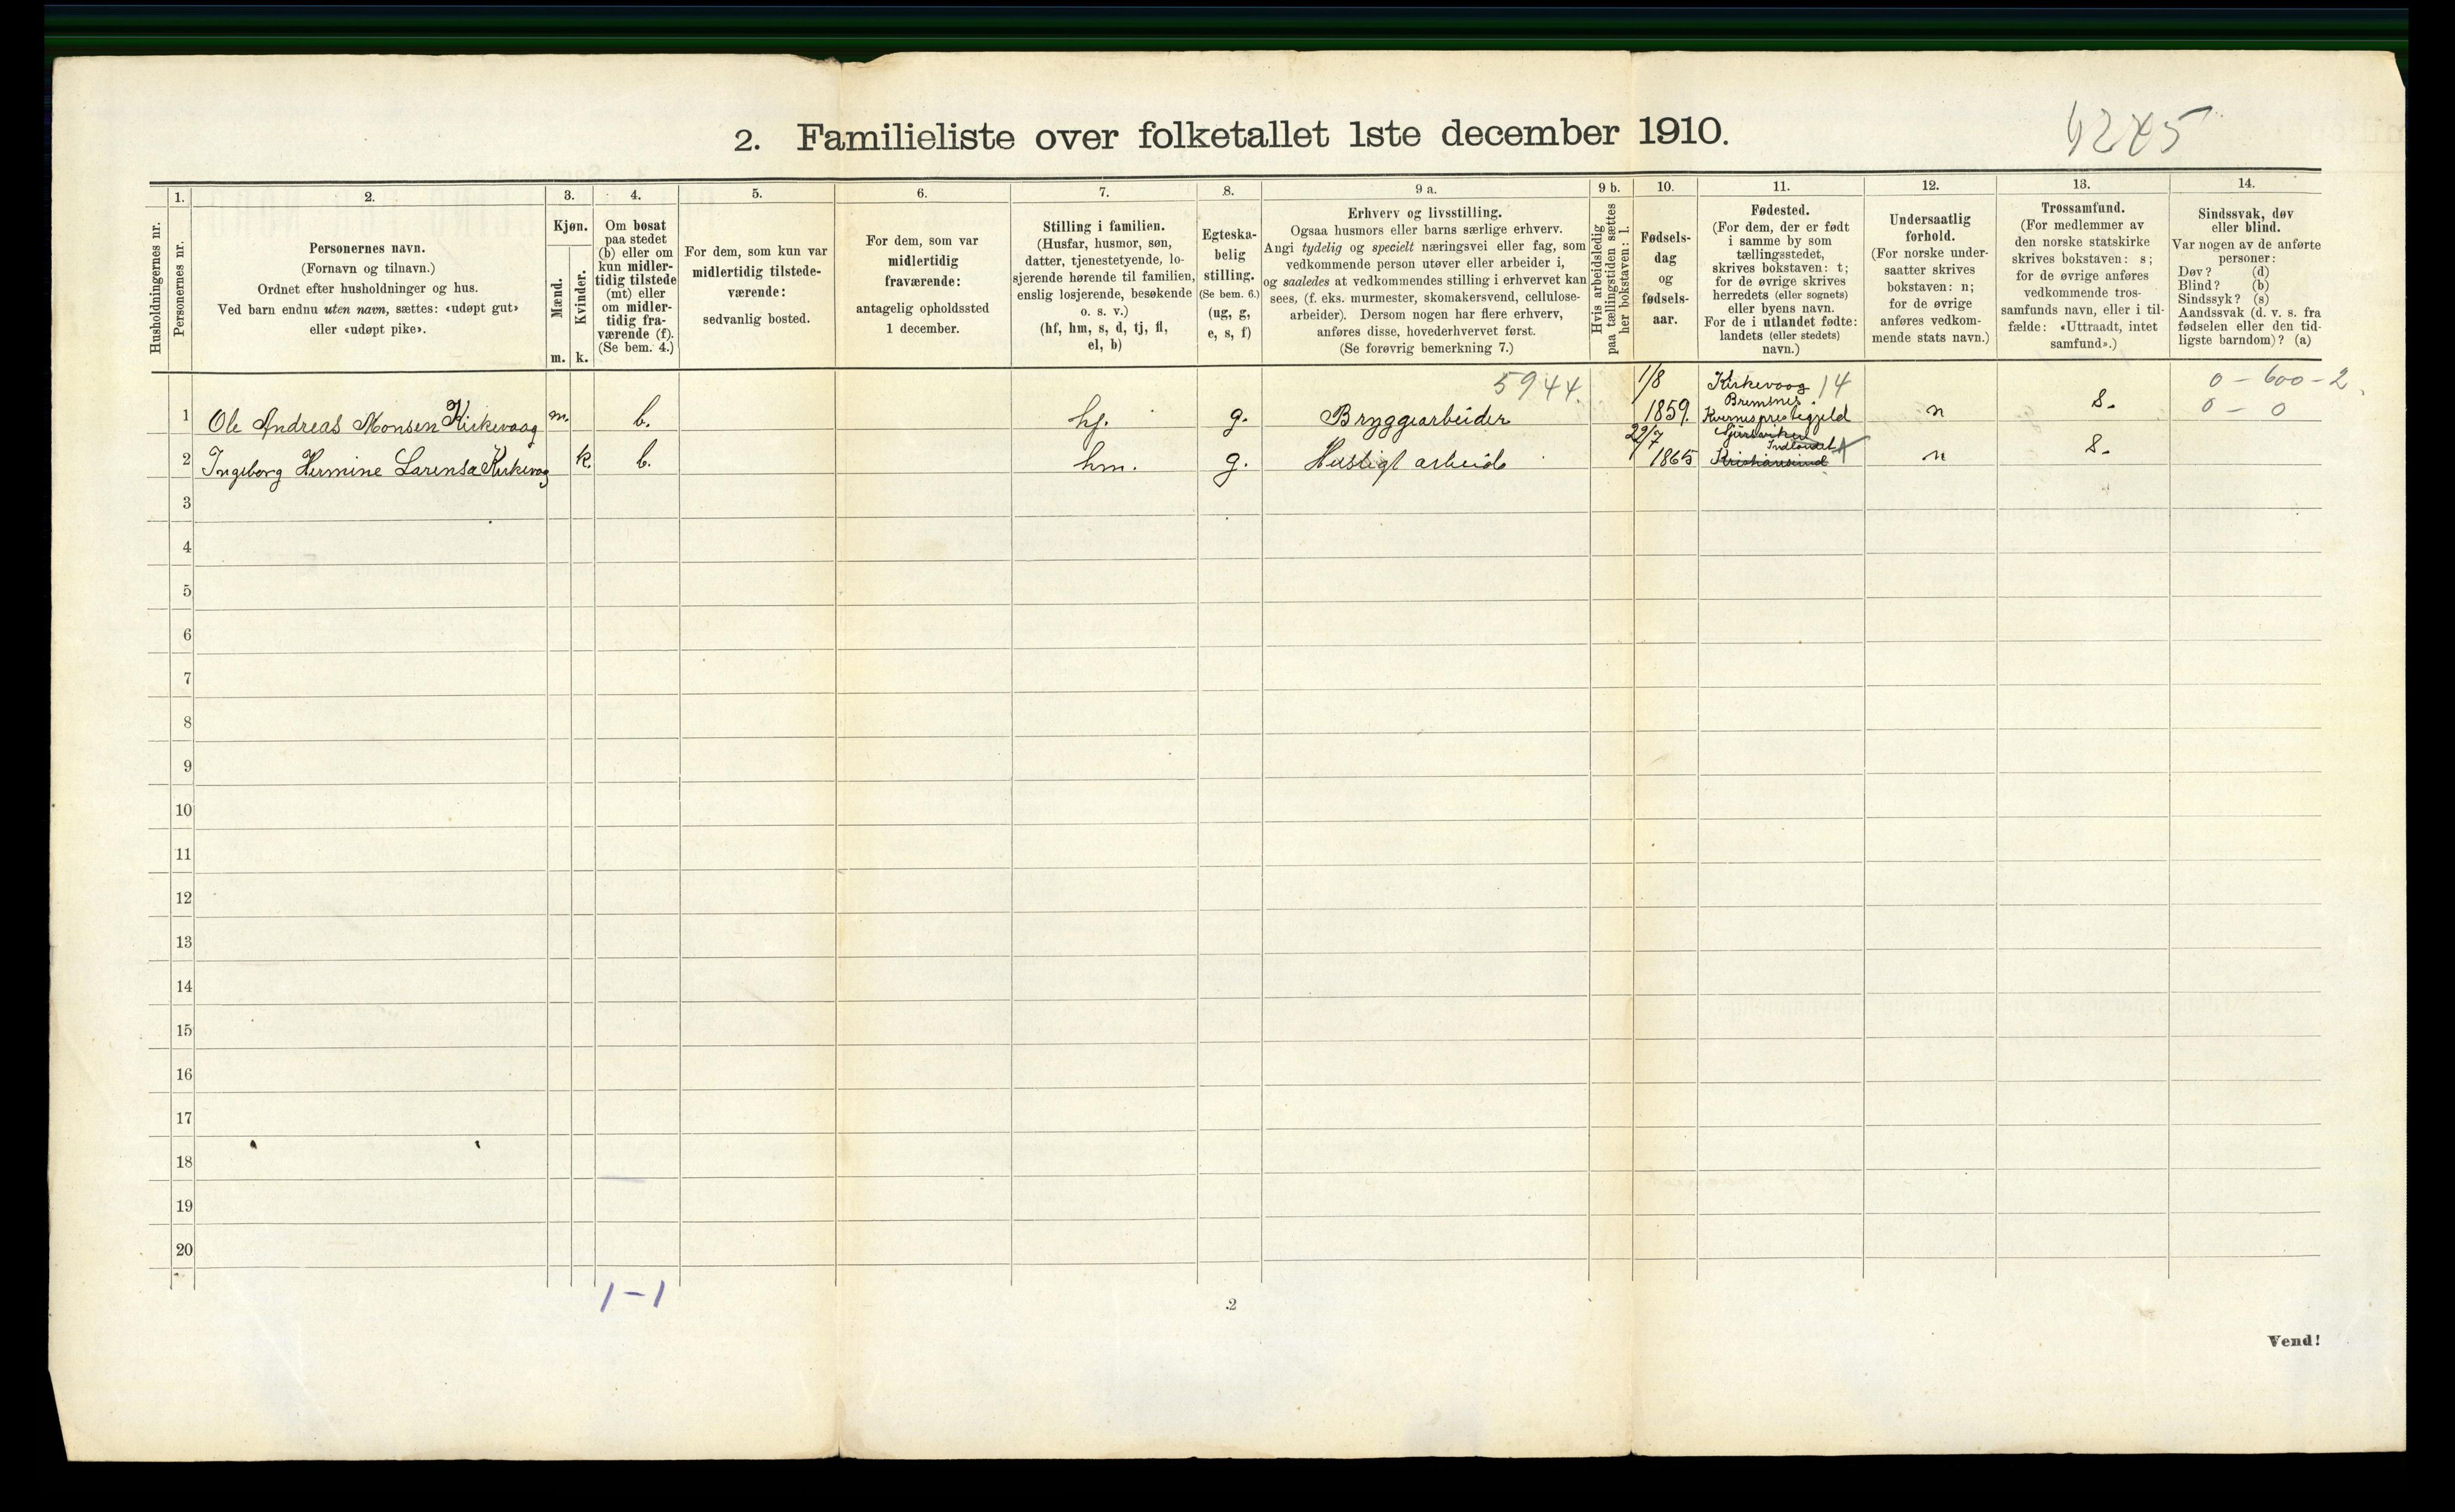 2. Familieliste over folketallet 1ste december 1910.
1.
2.
3.
4.
5.
6.
7.
8.
9 a.
9 b.
10.
11.
12.
13.
14.
Husholdningernes nr.
Personernes nr.
Personernes navn.
(Fornavn og tilnavn.)
Ordnet efter husholdninger og hus.
Ved barn endnu uten navn, sættes: «udøpt gut»
eller «udøpt pike».
Kjøn.
Mænd.
Kvinder.
m. k.
Om bosat
paa stedet
(b) eller om
kun midler-
tidig tilstede
(mt) eller
om midler-
tidig fra-
værende (f).
(Se bem. 4.)
For dem, som kun var
midlertidig tilstede-
værende:
sedvanlig bosted.
For dem, som var
midlertidig
fraværende:
antagelig opholdssted
1 december.
Stilling i familien.
(Husfar, husmor, søn,
datter, tjenestetyende, lo-
sjerende hørende til familien,
enslig losjerende, besøkende
o. s. v.)
(hf, hm, s, d, tj, fl,
el, b)
Egteska-
belig
stilling.
(Se bem. 6.)
(ug, g,
e, s, f)
Erhverv og livsstilling.
Ogsaa husmors eller barns særlige erhverv.
Angi tydelig og specielt næringsvei eller fag, som
vedkommende person utøver eller arbeider i,
og saaledes at vedkommendes stilling i erhvervet kan
sees, (f. eks. murmester, skomakersvend, cellulose-
arbeider). Dersom nogen har flere erhverv,
anføres disse, hovederhvervet først.
(Se forøvrig bemerkning 7.)
Hvis arbeidsledig
paa tællingstiden sættes
her bokstaven: l.
Fødsels-
dag
og
fødsels-
aar.
Fødested.
(For dem, der er født
i samme by som
tællingsstedet,
skrives bokstaven: t;
for de øvrige skrives
herredets (eller sognets)
eller byens navn.
For de i utlandet fødte:
landets (eller stedets)
navn.)
Undersaatlig
forhold.
(For norske under-
saatter skrives
bokstaven: n;
for de øvrige
anføres vedkom-
mende stats navn.)
Trossamfund.
(For medlemmer av
den norske statskirke
skrives bokstaven: s;
for de øvrige anføres
vedkommende tros-
samfunds navn, eller i til-
fælde: «Uttraadt, intet
samfund».)
Sindssvak, døv
eller blind.
Var nogen av de anførte
personer:
Døv? (d)
Blind? (b)
Sindssyk? (s)
Aandssvak (d. v. s. fra
fødselen eller den tid-
ligste barndom)? (a)
5944. 1/8 Kirkevaag 14 0 - 600 - 2
Bremsnes.
1 Ole Andreas Monsen Kirkevaag m. b. hf. g. Bryggearbeider 1859. Kvernes prestegjeld n s. 0 - 0
29/7
Indlandet
2 Ingeborg Hermine Larensa Kirkevaag k. b. hm. g. Husligt arbeide 1865 Kristiansund n s.
3
4
5
6
7
8
9
10
11
12
13
14
15
16
17
18
19
20
1-1
2
Vend!